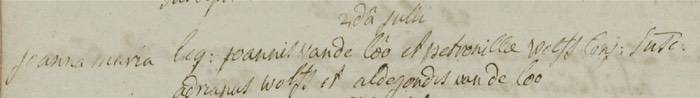 2dâ julii
joanna maria leg: joannis van de Löo et petronillæ wolffs conj: susc:
adrianus wolffs et aldegondis van de Loo